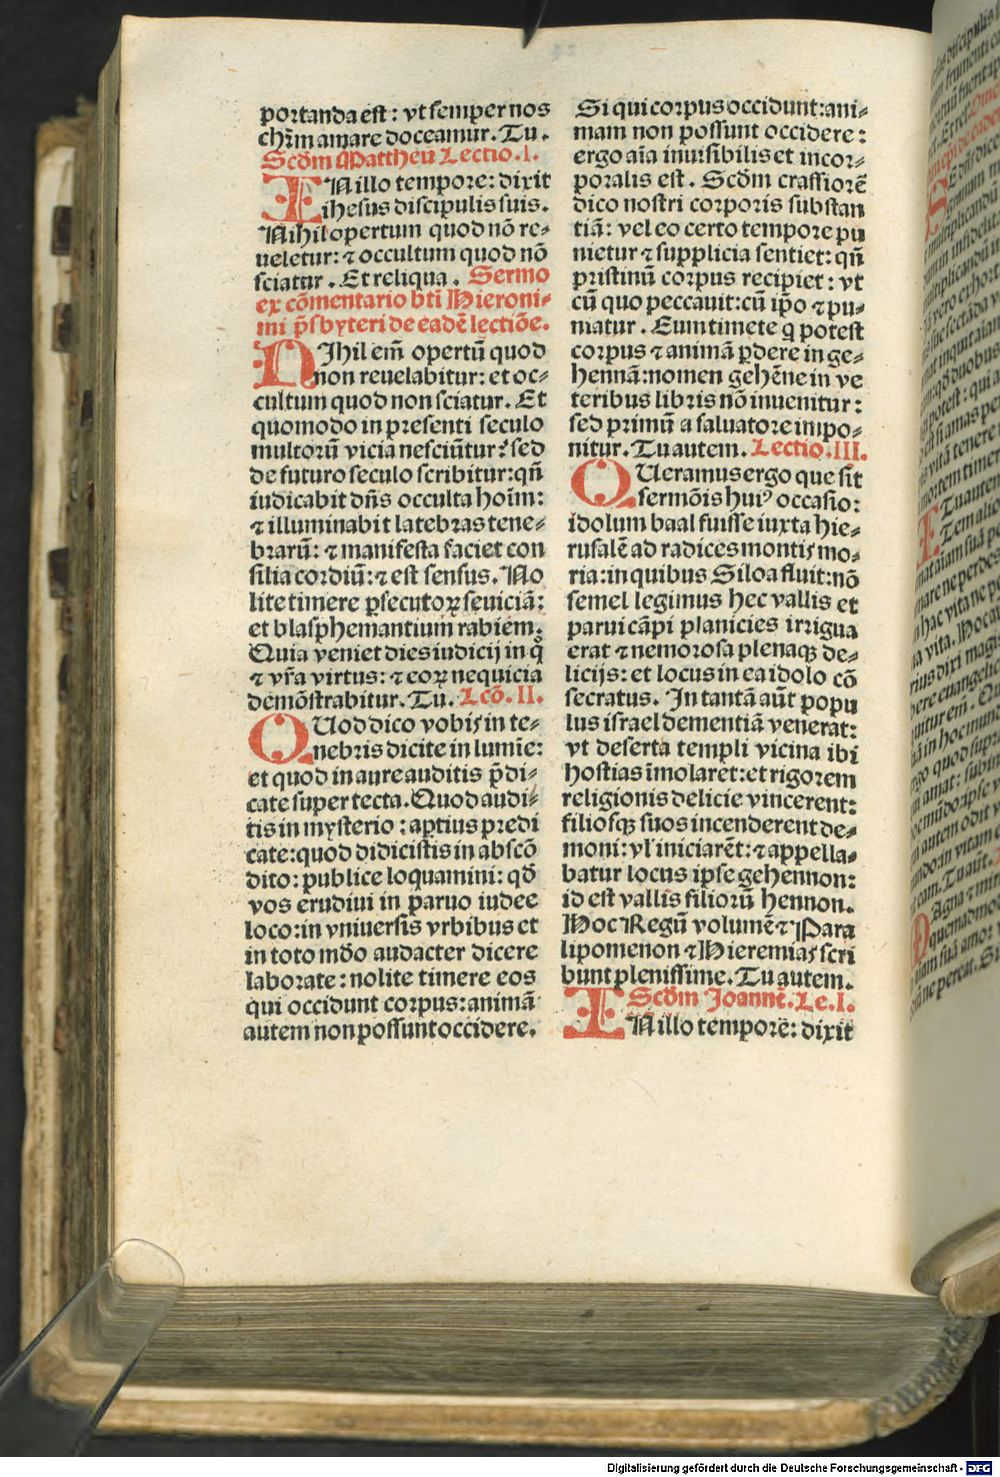 portanda est: vt semper nos
chr̄m amare doceamur. Tu.
Scd̄m Mattheū Lectio. I.
IN illo tempore: dixit
ihesus discipulis suis.
Nihil opertum quod nō re-
ueletur: ⁊ occultum quod nō
sciatur. Et reliqua. Sermo
ex cōmentario bt̄i Hieroni-
mi p̄sbyteri de eadē lectiōe.
NIhil em̄ opertū quod
non reuelabitur: et oc-
cultum quod non sciatur. Et
quomodo in presenti seculo
multorū vicia nesciūtur? sed
de futuro seculo scribitur: qn̄
iudicabit dn̄s occulta hoīm:
⁊ illuminabit latebras tene-
brarū: ⁊ manifesta faciet con
silia cordiū: ⁊ est sensus. No
lite timere ꝑsecutoꝝ seuiciā:
et blasphemantium rabiem.
Quia veniet dies iudicij in q̊
⁊ vr̄a virtus: ⁊ eoꝝ nequicia
demōstrabitur. Tu. Lcō. II.
QUod dico vobis in te-
nebris dicite in lumīe:
et quod in aure auditis p̄di-
cate super tecta. Quod audi-
tis in mysterio: aptius predi
cate: quod didicistis in abscō
dito: publice loquamini: qd̄
vos erudiui in paruo iudee
loco: in vniuersis vrbibus et
in toto mūdo audacter dicere
laborate: nolite timere eos
qui occidunt corpus: animā
autem non possunt occidere.
Si qui corpus occidunt: ani-
mam non possunt occidere:
ergo aīa inuisibilis et incor-
poralis est. Scd̄m crassiorē
dico nostri corporis substan
tiā: vel eo certo tempore pu
nietur ⁊ supplicia sentiet: qn̄
pristinū corpus recipiet: vt
cū quo peccauit: cū ip̄o ⁊ pu-
niatur. Eum timete q̄ potest
corpus ⁊ animā ꝑdere in ge-
hennā: nomen gehēne in ve
teribus libris nō inuenitur:
sed primū a saluatore impo-
nitur. Tu autem. Lectio. III.
QUeramus ergo que sit
sermōis huiꝰ occasio:
idolum baal fuisse iuxta hie-
rusalē ad radices montis mo-
ria: in quibus Siloa fluit: nō
semel legimus hec vallis et
parui cāpi planicies irrigua
erat ⁊ nemorosa plenaqꝫ de-
licijs: et locus in ea idolo cō
secratus. In tantā aūt popu
lus israel dementiā venerat:
vt deserta templi vicina ibi
hostias īmolaret: et rigorem
religionis delicie vincerent:
filiosqꝫ suos incenderent de-
moni: vl' iniciarēt: ⁊ appella-
batur locus ipse gehennon:
id est vallis filiorū hennon.
Hoc Regū volumē ⁊ Para
lipomenon ⁊ Hieremias scri
bunt plenissime. Tu autem.
Scd̄m Joannē. Le. I.
IN illo tempore: dixit
Digitalisierung gefördert durch die Deutsche Forschungsgemeinschaft - DFG